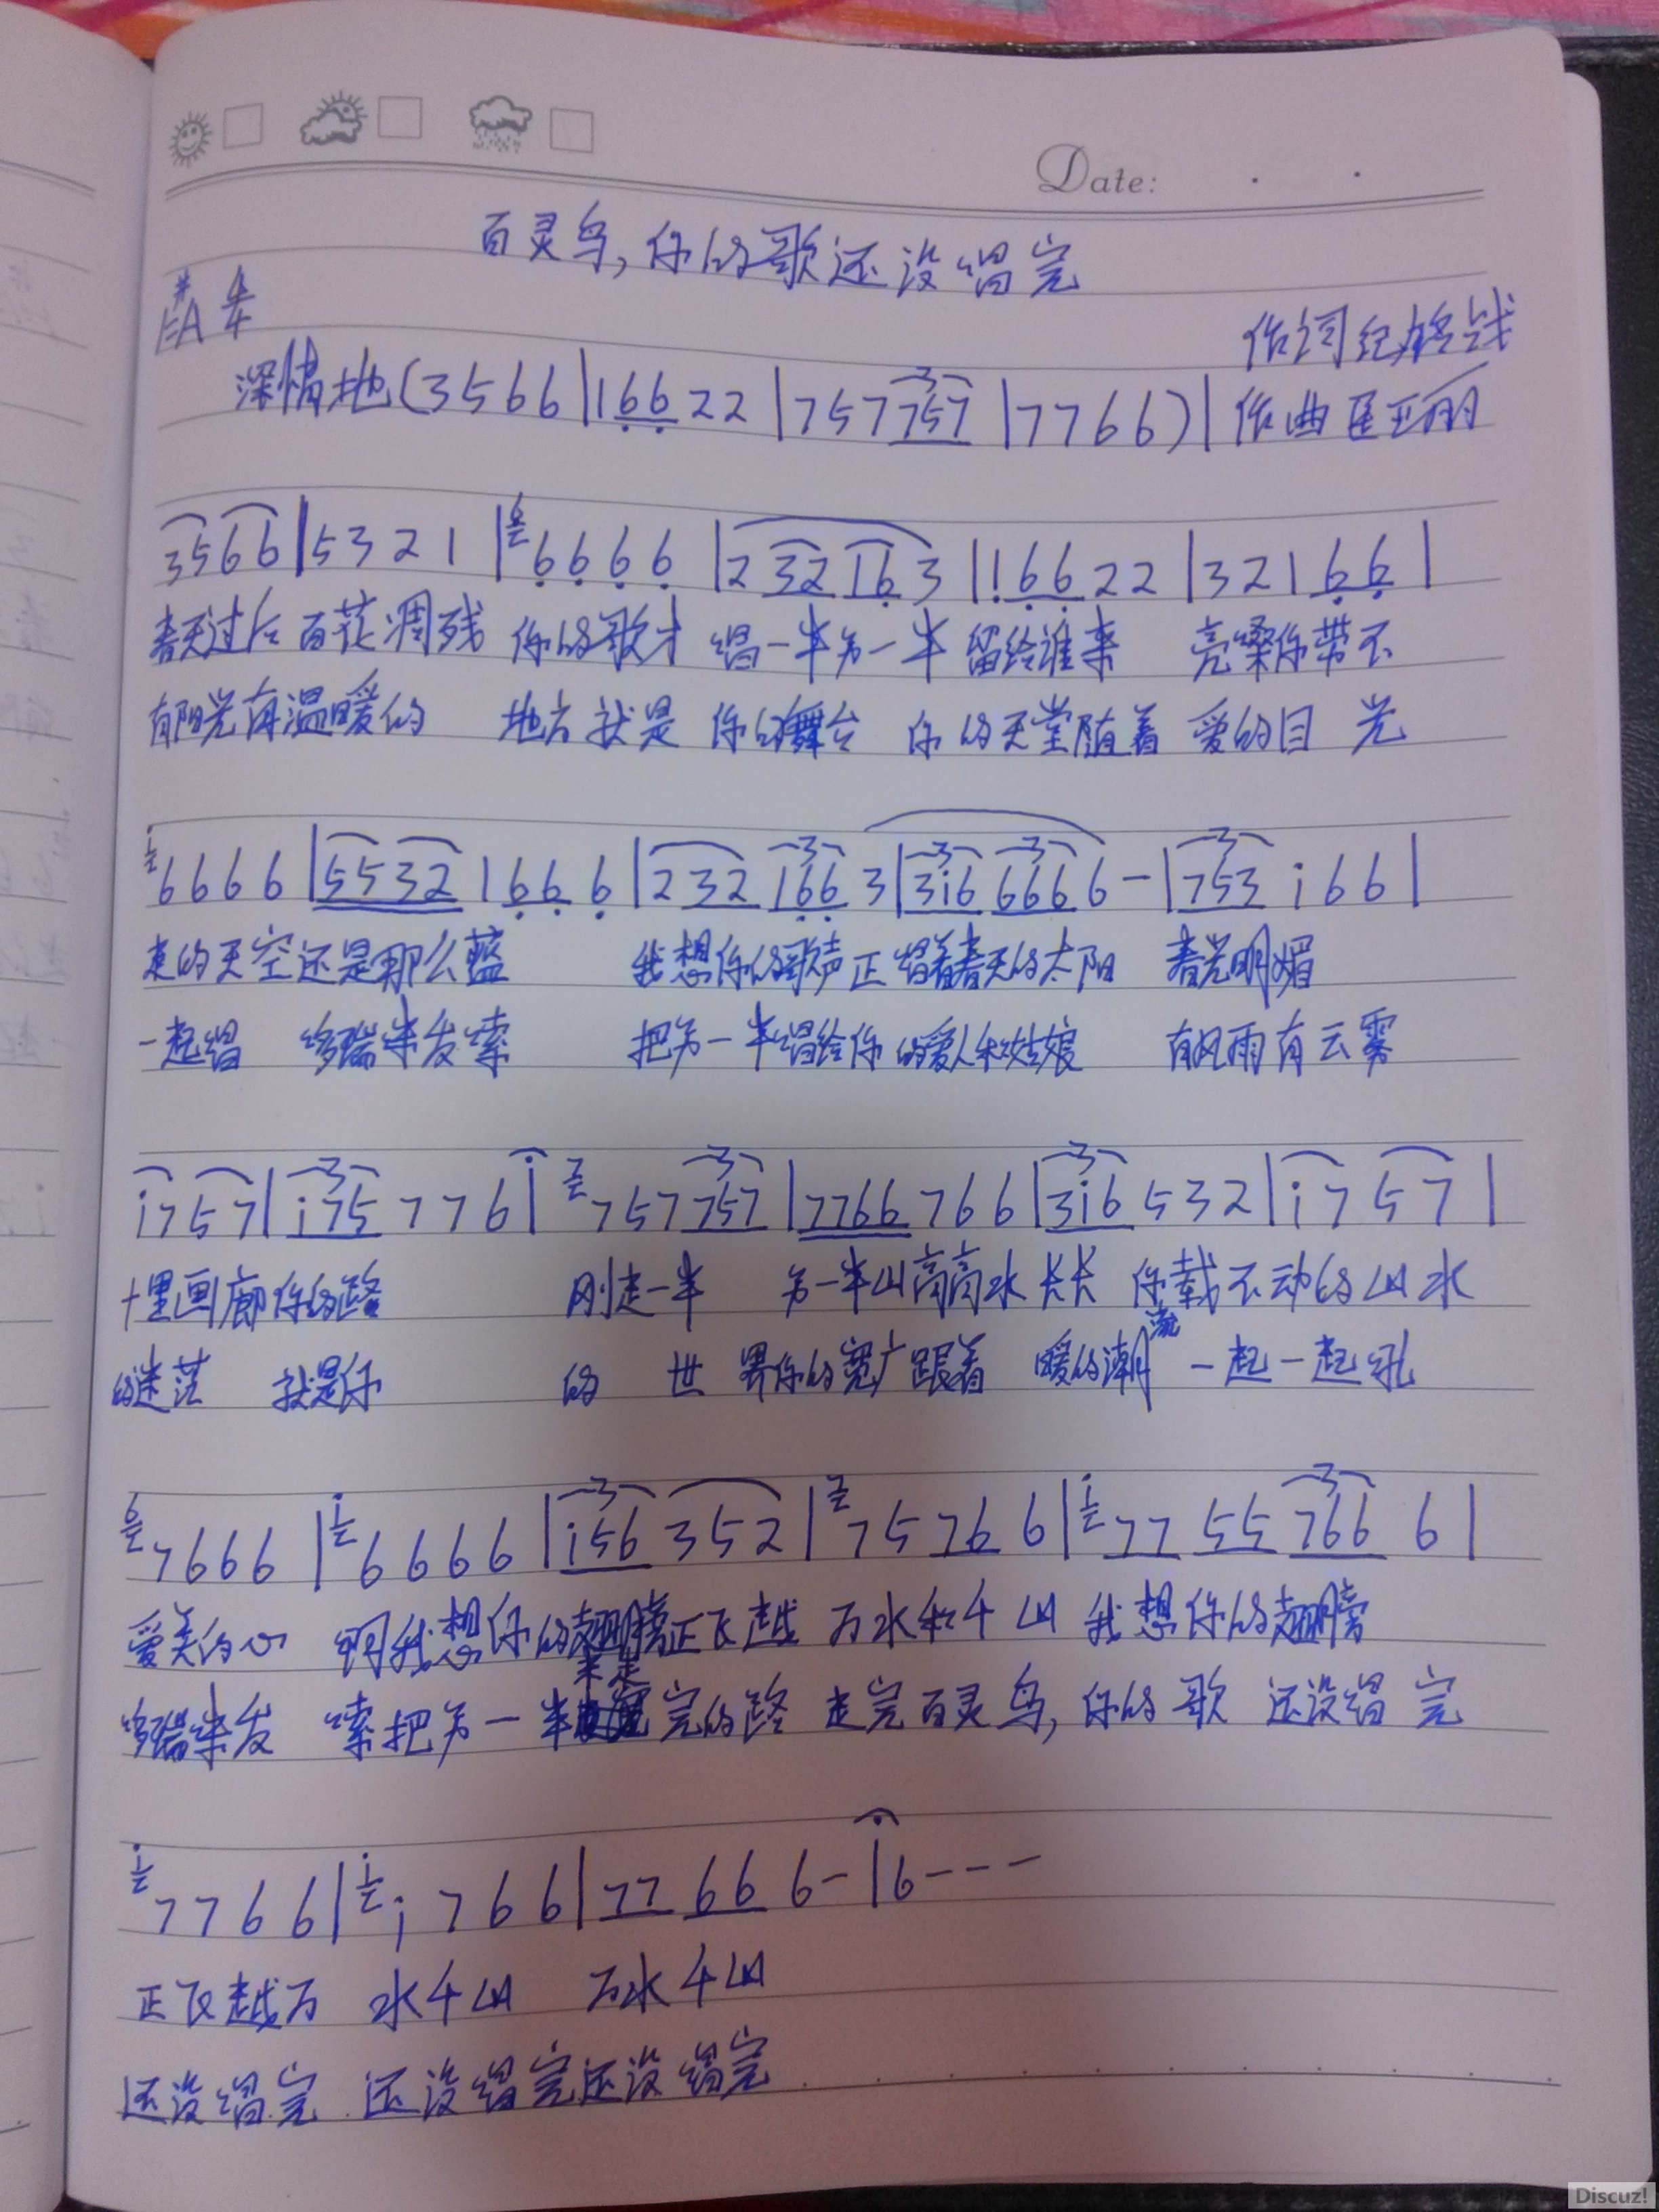 Date:
百灵鸟,你的歌还没唱完
#
1=A 4/4
作词 纪
深情地(3566|16622|757757|7766)|作曲 崔亚丽
3566|5321|6 6666|232163|16622|32166|
春天过后百花凋残 你的歌才 唱一半另一半 留给谁亲 亮嗓你带不
有阳光有温暖的 地方就是 你的舞台 你的天堂随着 爱的目光
i 6666|55321666|2321663|3i66666-|753i66|
走的天空还是那么蓝 我想你的歌声正唱着春天的太阳 春光明媚
一起唱 哆瑞米发嗦 把另一半唱给你的爱人和姑娘 有风雨有云雾
i757|i75776i 7 757757|7766766|3i6532|i757|
十里画廊你的路 刚走一半 另一半山高高水长长 你载不动的山水
的迷茫 就是你 的 世界你的宽广跟着 暖的潮流 一起一起
6 7666|i 6666|i56352|7 75766|i 77557666|
爱美的心 明我想你的翅膀正飞越 万水和千山 我想你的翅膀
哆瑞米发 嗦把另一半未走完的路 走完百灵鸟,你的歌 还没唱完
i 7766|i i766|77666-|6---
正飞越万 水千山 万水千山
还没唱完 还没唱完还没唱完
Discuz!